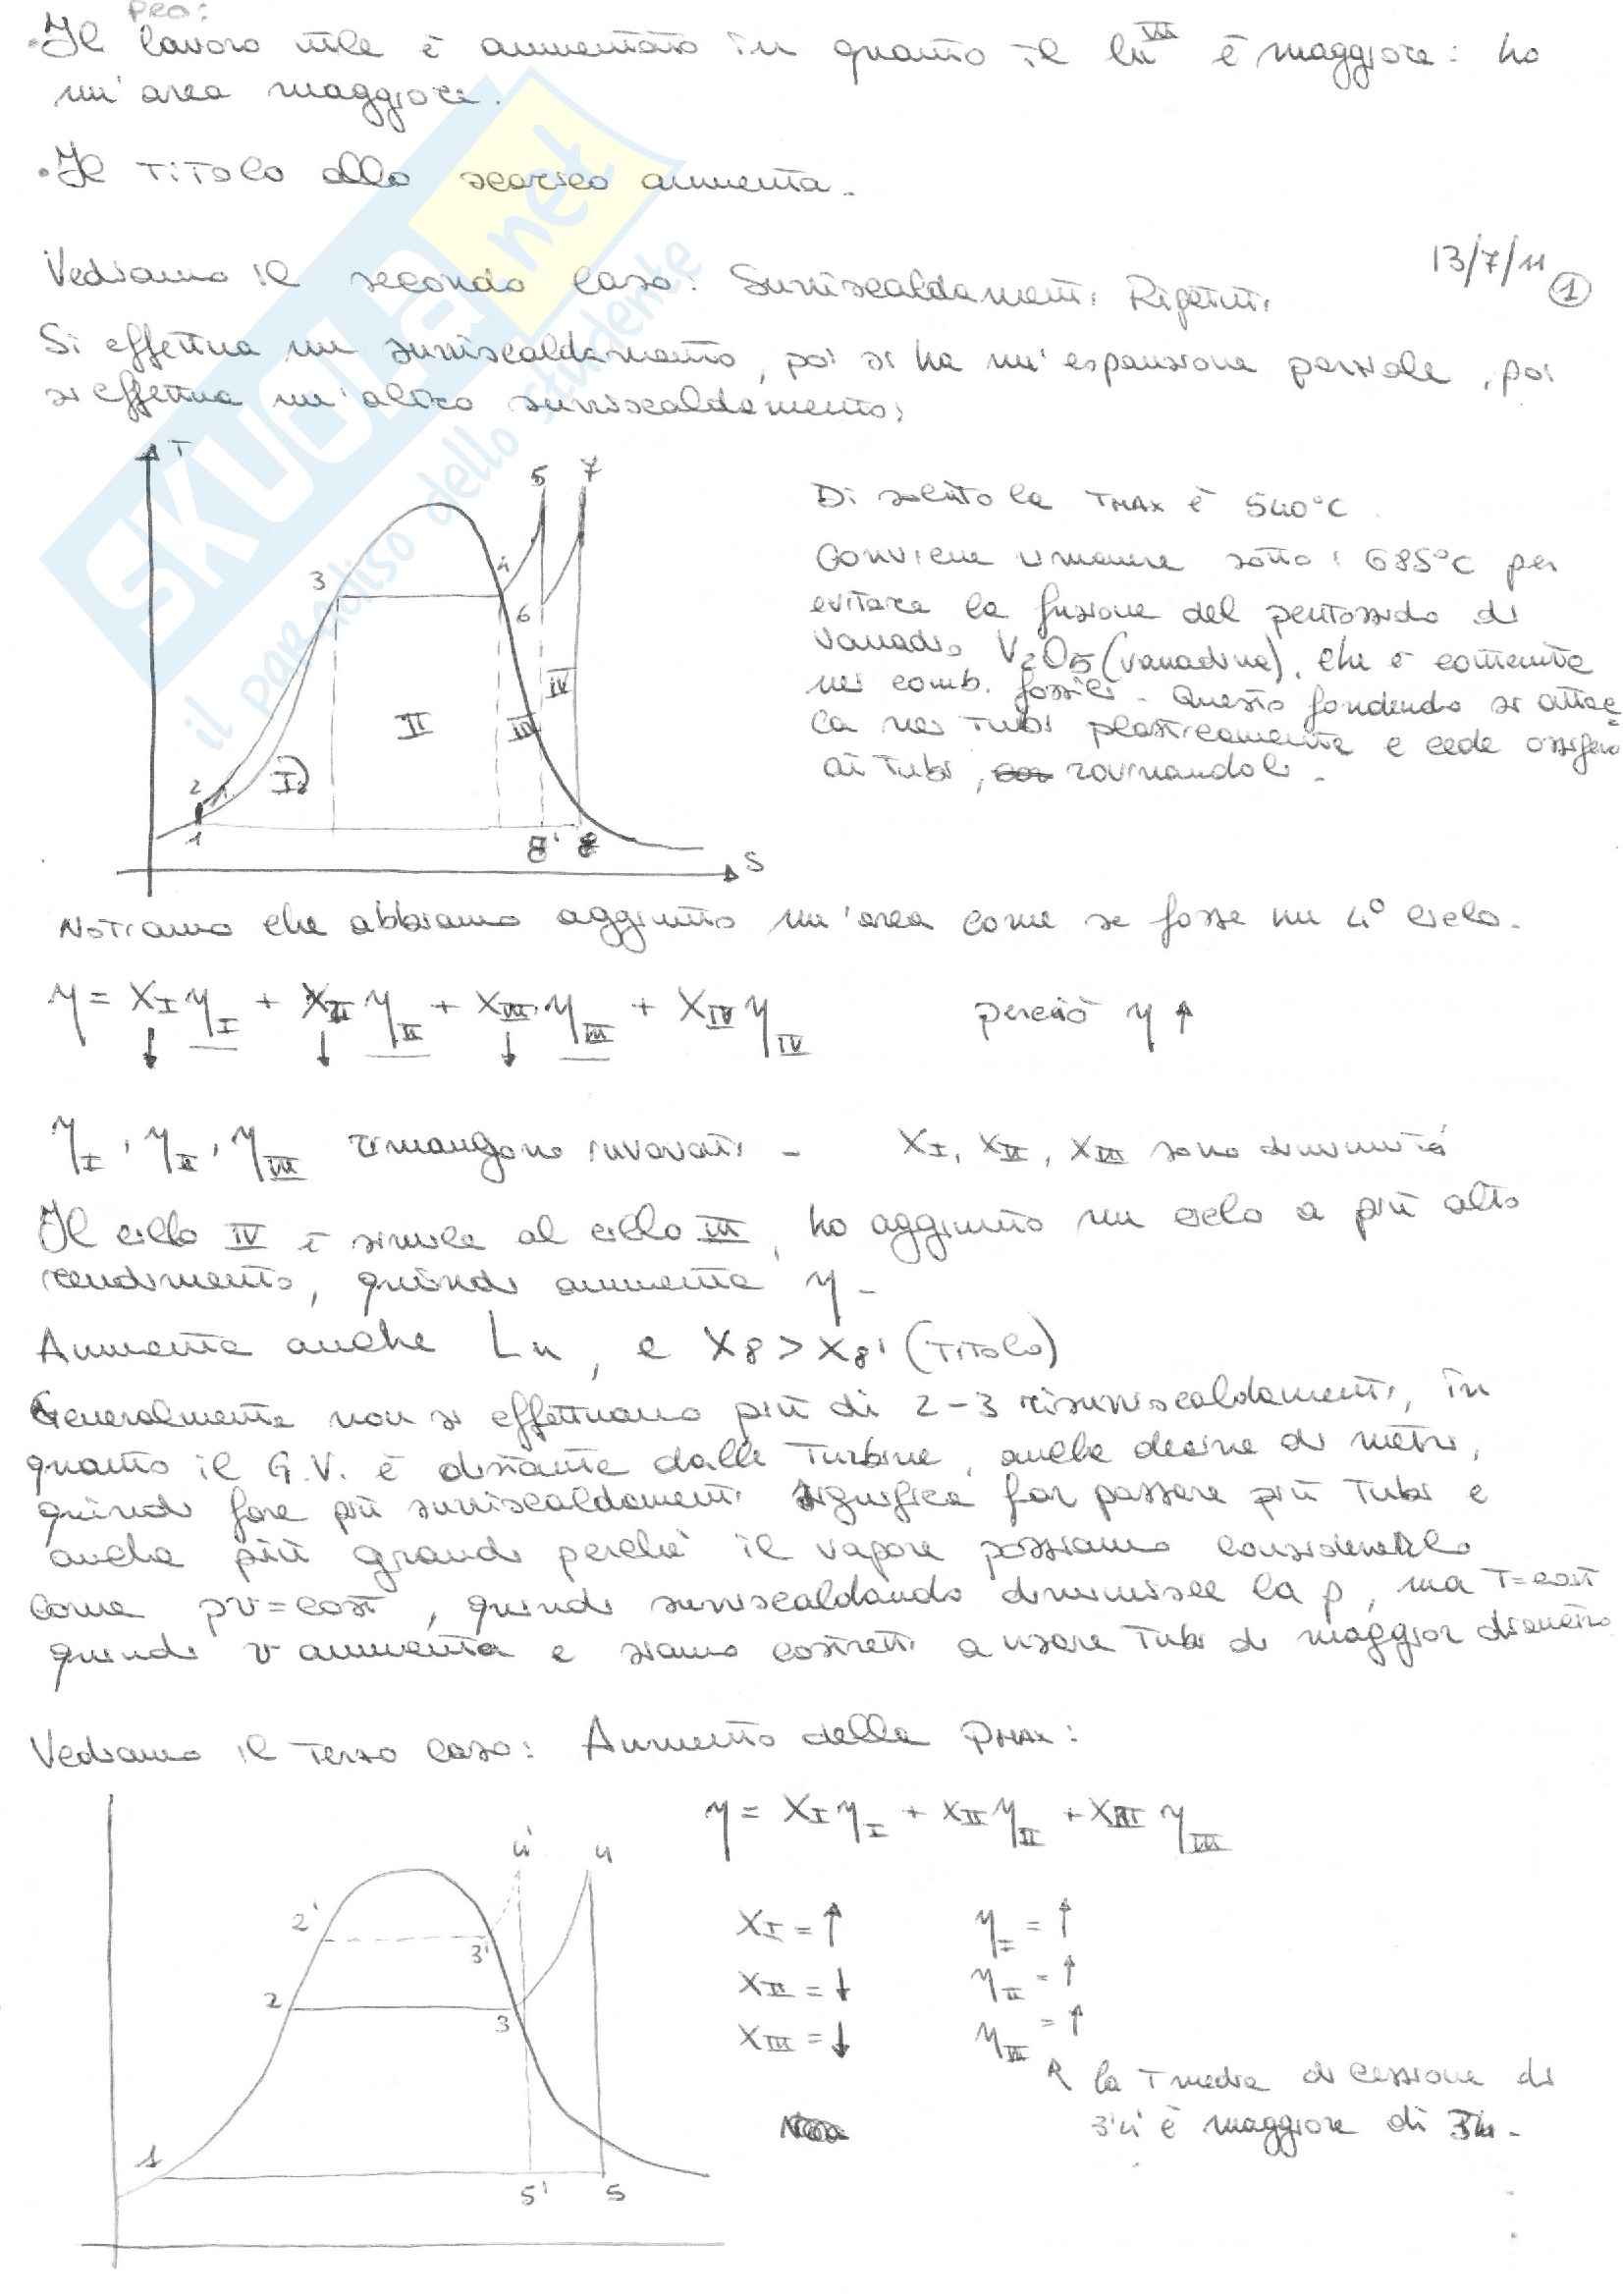 PRO:
• Il lavoro utile è aumentato in quanto il lu III è maggiore: ho
un'area maggiore.
• Il Titolo allo scarico aumenta.
13/7/11 1
Vediamo il secondo caso: Surriscaldamenti Ripetuti
Si effettua un surriscaldamento, poi si ha un'espansione parziale, poi
si effettua un'altro surriscaldamento:
T
5 7
3 4
6
II III IV
I
2
1 8' 8
S
Di solito la TMAX è 540°C.
Conviene rimanere sotto i 685°C per
evitare la fusione del pentossido di
Vanadio V2O5 (vanadina), che è contenuta
nei comb. fossili. Questo fondendo si attac=
ca nei Tubi plasticamente e cede ossigeno
ai Tubi, rovinandoli.
Notiamo che abbiamo aggiunto un'area come se fosse un 4° ciclo.
η = XI ηI + XII ηII + XIII ηIII + XIV ηIV perciò η ↑
↓ ↓ ↓
ηI, ηII, ηIII rimangono invariati - XI, XII, XIII sono diminuiti
Il ciclo IV è simile al ciclo III, ho aggiunto un ciclo a più alto
rendimento, quindi aumenta η -
Aumenta anche Lu, e X8 > X8' (Titolo)
Generalmente non si effettuano più di 2-3 risurriscaldamenti, in
quanto il G.V. è distante dalle Turbine, anche decine di metri,
quindi fare più surriscaldamenti significa far passare più Tubi e
anche più grandi perché il vapore possiamo considerarlo
come pv=cost, quindi surriscaldando diminuisce la p, ma T=cost
quindi v aumenta e siamo costretti a usare Tubi di maggior diametro
Vediamo il Terzo caso: Aumento della PMAX:
η = XI ηI + XII ηII + XIII ηIII
4' 4
2' 3'
2 3
1 5' 5
XI = ↑ ηI = ↑
XII = ↓ ηII = ↑
XIII = ↓ ηIII = ↑
la T media di cessione di
3'4' è maggiore di 34.
SKUOLA.net
il paradiso dello studente